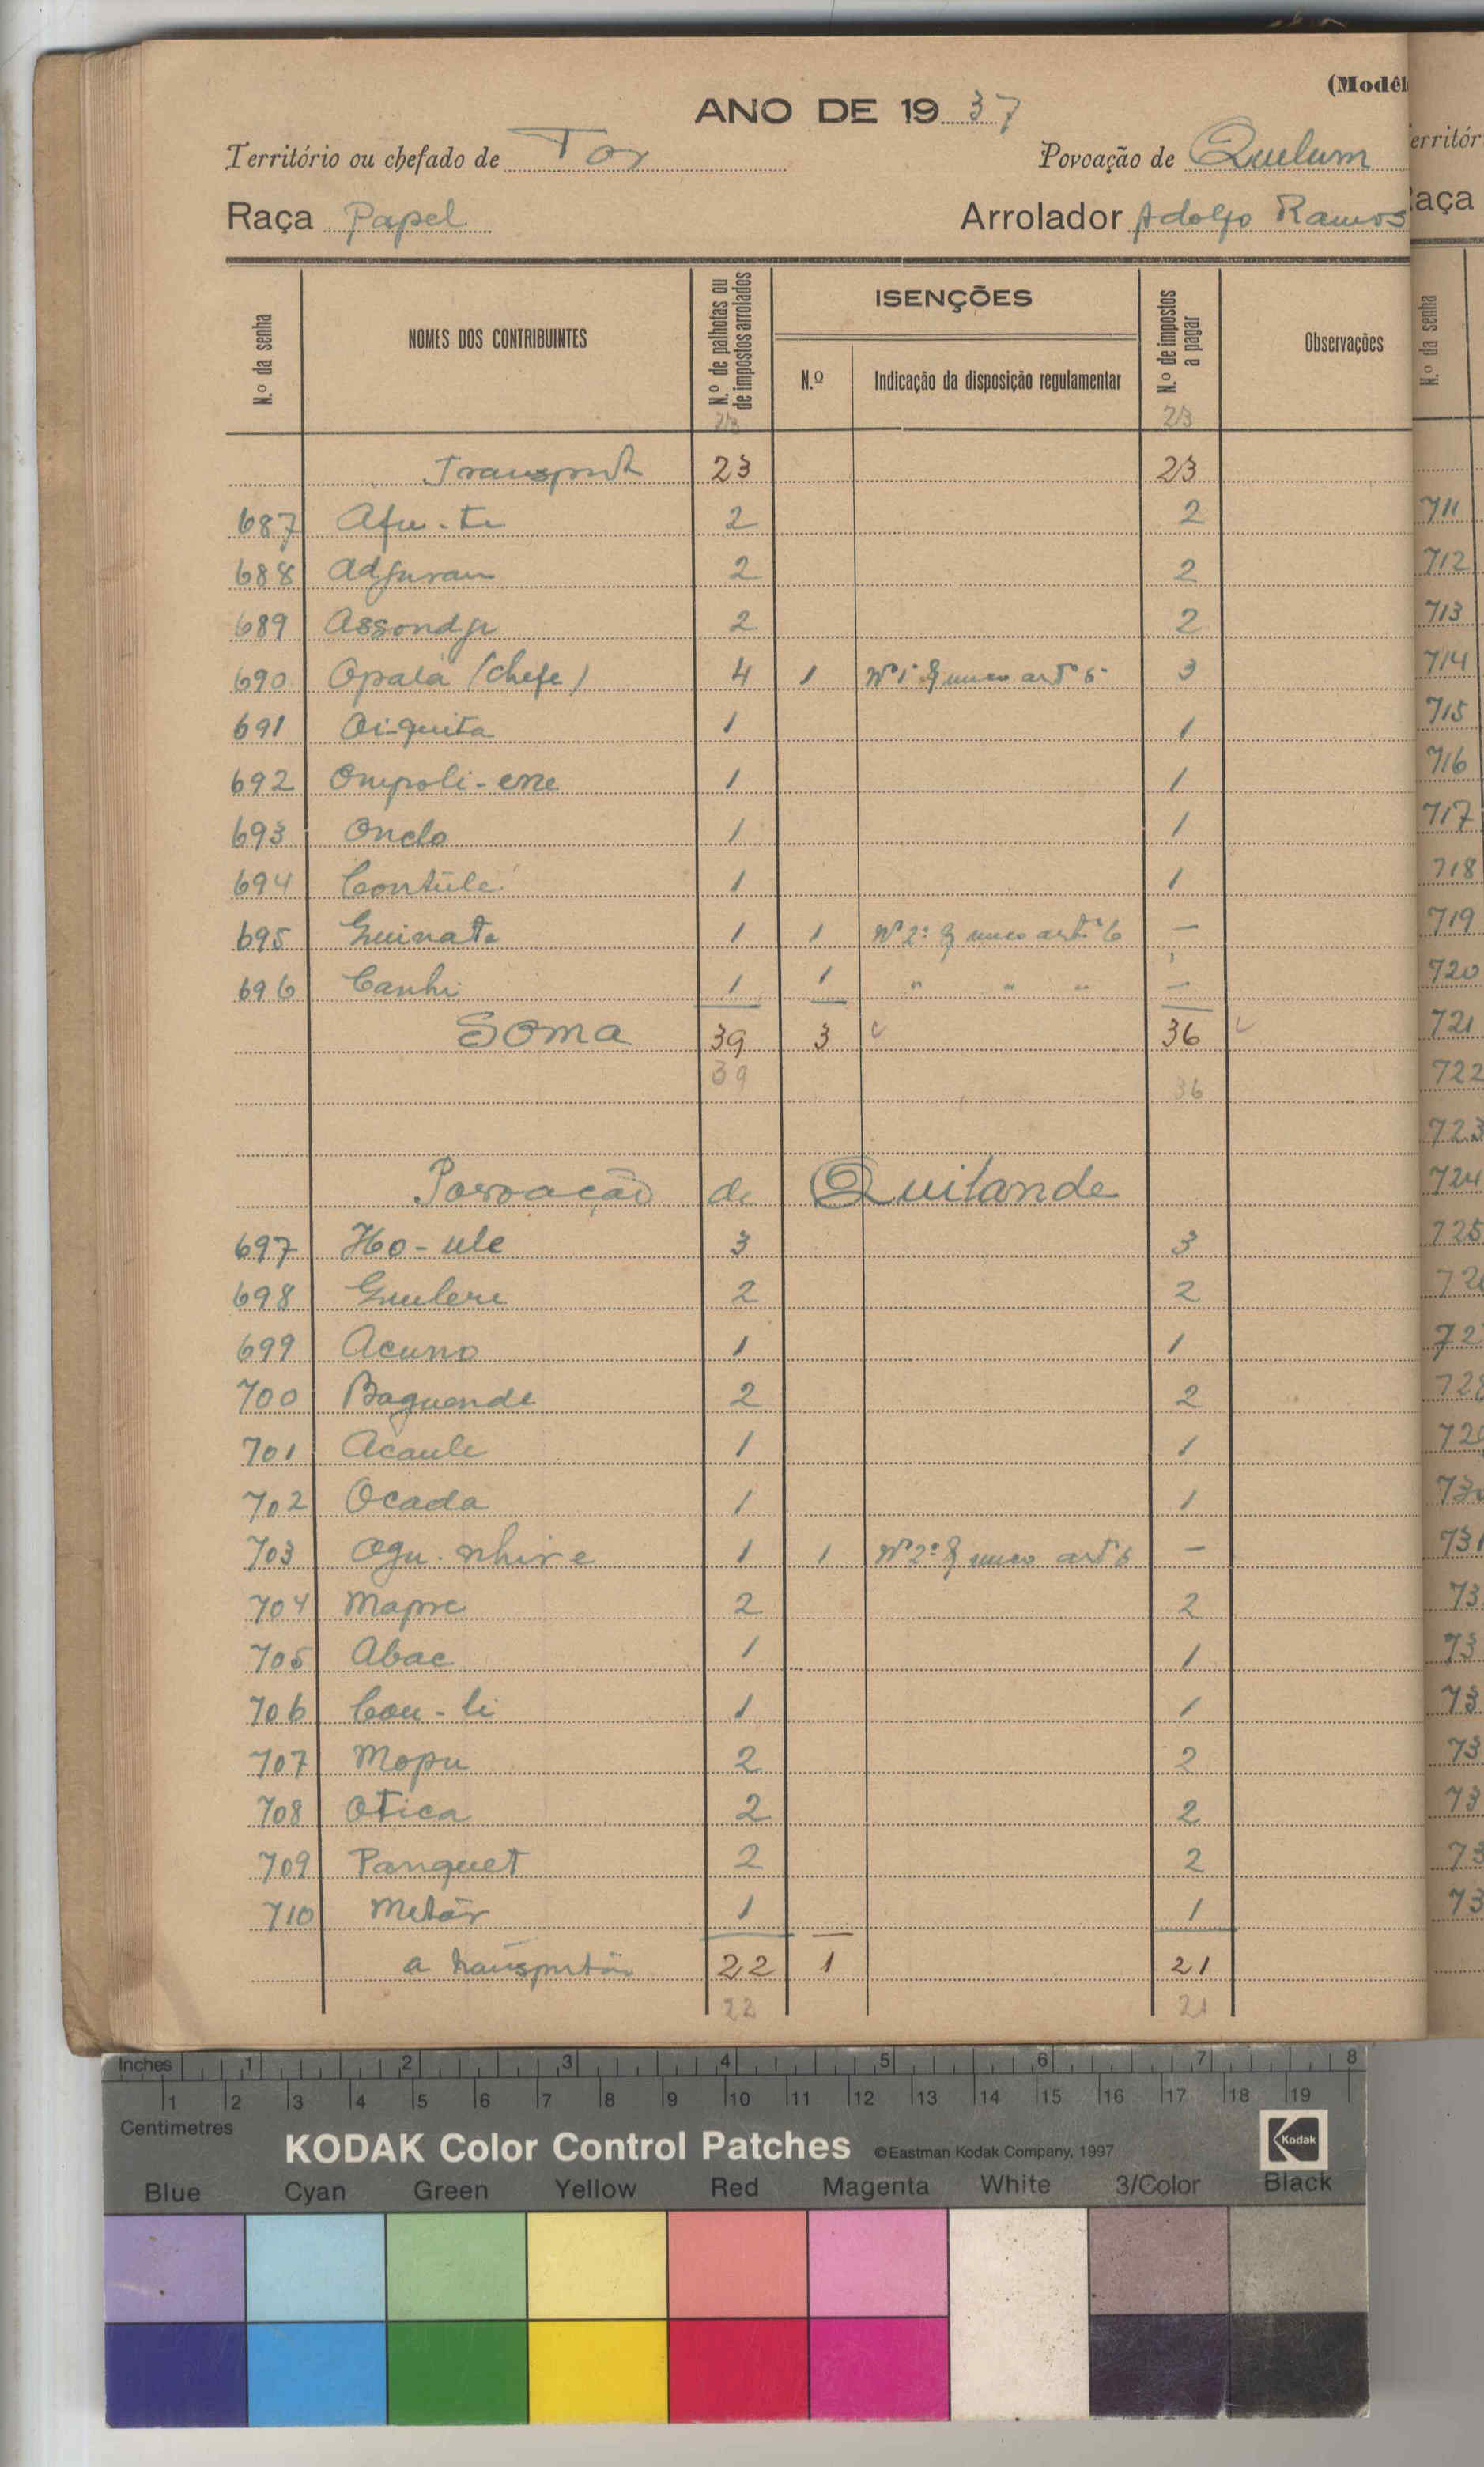 (Modêl
ANO DE 1937
Território ou chefado de Tor Povoação de Quelum
Raça Papel Arrolador Adolfo Ramos
N.º da senha NOMES DOS CONTRIBUINTES N.º de palhotas ou de impostos arrolados ISENÇÕES N.º Indicação da disposição regulamentar N.º de impostos a pagar Observações
23 23
Transporte 23 23
687 Afu-te 2 2
688 Adjuran 2 2
689 Assondje 2 2
690 Opala (chefe) 4 1 Nº 1º § unico artº 6º 3
691 Oi-quita 1 1
692 Ompoli-ene 1 1
693 Onclo 1 1
694 Contúlé 1 1
695 Guinate 1 1 Nº 2º § unico artº 6 —
696 Canhi 1 1 " " " —
Soma 39 3 36
39 36
Povoação de Quitande
697 Ho-ule 3 3
698 Gulere 2 2
699 Acuno 1 1
700 Baguende 2 2
701 Acaule 1 1
702 Ocada 1 1
703 Ogu-nhire 1 1 Nº 2º § unico artº 6 —
704 Mapre 2 2
705 Abac 1 1
706 Cou-li 1 1
707 Mopu 2 2
708 Otica 2 2
709 Panquet 2 2
710 Metãr 1 1
a transportar 22 1 21
22 21
erritór
aça
N.º da senha
711
712
713
714
715
716
717
718
719
720
721
722
723
724
725
72
72
728
72
73
731
73
73
73
73
73
73
73
Inches 1 2 3 4 5 6 7 8
1 2 3 4 5 6 7 8 9 10 11 12 13 14 15 16 17 18 19
Centimetres
KODAK Color Control Patches ©Eastman Kodak Company, 1997 Kodak
Blue Cyan Green Yellow Red Magenta White 3/Color Black